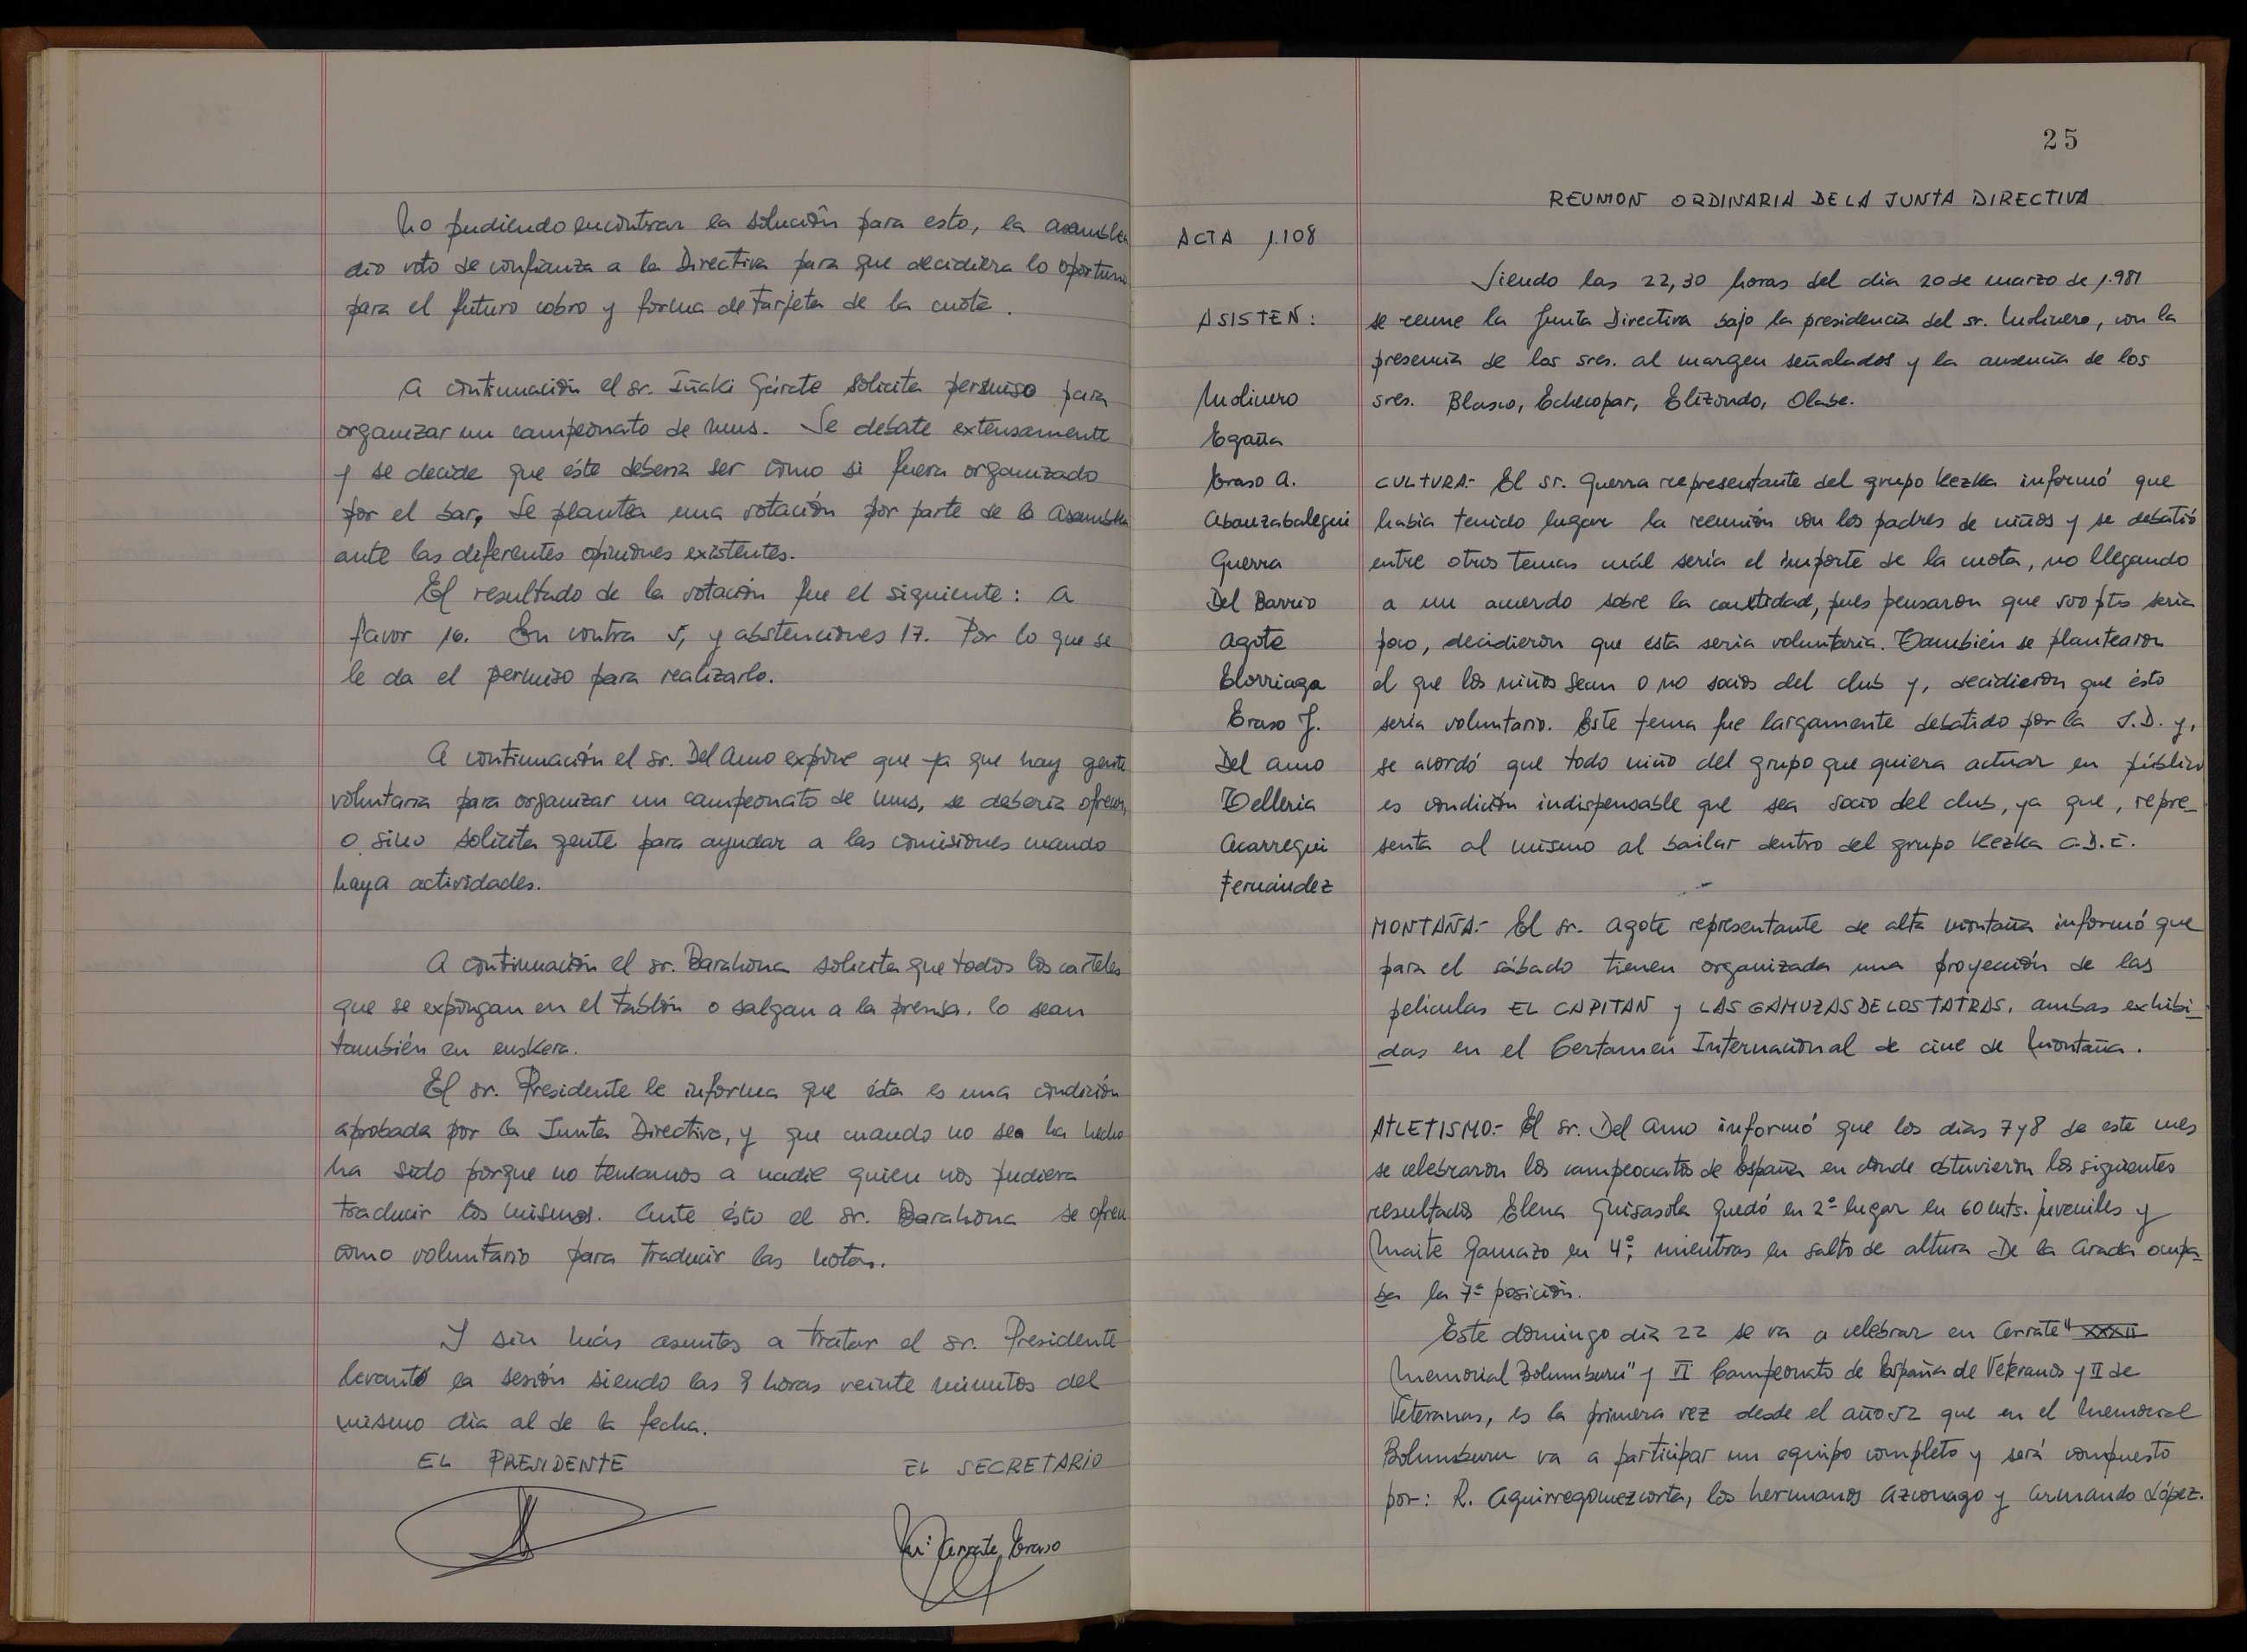 No pudiendo encontrar la solución para esto, la asamblea
dio voto de confianza a la Directiva para que decidiera lo oportuno
para el futuro cobro y forma de tarjeta de la cuota.
A continuación el sr. Iñaki Gárate solicita permiso para
organizar un campeonato de mus. Se debate extensamente
y se decide que éste deberia ser como si fuera organizado
por el bar, Se plantea una votación por parte de la asamblea
ante las diferentes opiniones existentes.
El resultado de la votación fue el siguiente: a
favor 16. En contra 5, y abstenciones 17. Por lo que se
le da el permiso para realizarlo.
A continuación el sr. Del Amo expone que ya que hay gente
voluntaria para organizar un campeonato de mus, se deberia ofrecer,
o sino solicita gente para ayudar a las comisiones cuando
haya actividades.
A continuación el sr. Barahona solicita que todos los carteles
que se expongan en el tablón o salgan a la prensa. lo sean
también en euskera.
El sr. Presidente le informa que ésta es una condición
aprobada por la Junta Directiva, y que cuando no se ha hecho
ha sido porque no teniamos a nadie quien nos pudiera
traducir los mismos. Ante ésto el sr. Barahona se ofrece
como voluntario para traducir las notas.
Y sin más asuntos a tratar el sr. Presidente
levantó la sesión siendo las 9 horas veinte minutos del
mismo dia al de la fecha.
EL PRESIDENTE EL SECRETARIO
25
REUNION ORDINARIA DE LA JUNTA DIRECTIVA
ACTA 1.108
Siendo las 22,30 horas del dia 20 de marzo de 1.981
ASISTEN: se reune la Junta Directiva bajo la presidencia del sr. Molinero, con la
presencia de los sres. al margen señalados y la ausencia de los
Molinero sres. Blasco, Echecopar, Elizondo, Olabe.
Egaña
Eraso A. CULTURA.- El sr. Guerra representante del grupo Kezka informó que
Abanzabalegui habia tenido lugar la reunión con los padres de niños y se debatió
Guerra entre otros temas cuál seria el importe de la cuota, no llegando
Del Barrio a un acuerdo sobre la cantidad, pues pensaron que 500 pts seria
Agote poco, decidieron que ésta seria voluntaria. También se plantearon
Elorriaga el que los niños sean o no socios del club y, decidieron que ésto
Eraso J. seria voluntario. Este tema fue largamente debatido por la J.D. y,
Del Amo se acordó que todo niño del grupo que quiera actuar en público
Telleria es condición indispensable que sea socio del club, ya que, repre-
Acarregui senta al mismo al bailar dentro del grupo Kezka C.D.E.
Fernández
MONTAÑA.- El sr. Agote representante de alta montaña informó que
para el sábado tienen organizada una proyección de las
peliculas EL CAPITAN y LAS GAMUZAS DE LOS TATRAS. ambas exhibi-
das en el Certamen Internacional de cine de Montaña.
ATLETISMO.- El sr. Del Amo informó que los dias 7 y 8 de este mes
se celebraron los campeonatos de España en donde obtuvieron los siguientes
resultados Elena Guisasola quedó en 2º lugar en 60 mts. juveniles y
Maite Gamazo en 4º, mientras en salto de altura De la Arada ocupa-
ba la 7ª posición.
Este domingo dia 22 se va a celebrar en Arrate " XXXII
Memorial Bolumburu" y VI Campeonato de España de Veteranos y II de
Veteranas, es la primera vez desde el año 52 que en el Memorial
Bolumburu va a participar un equipo completo y será compuesto
por: R. Aguirregomezcorta, los hermanos Azconago y Armando López.